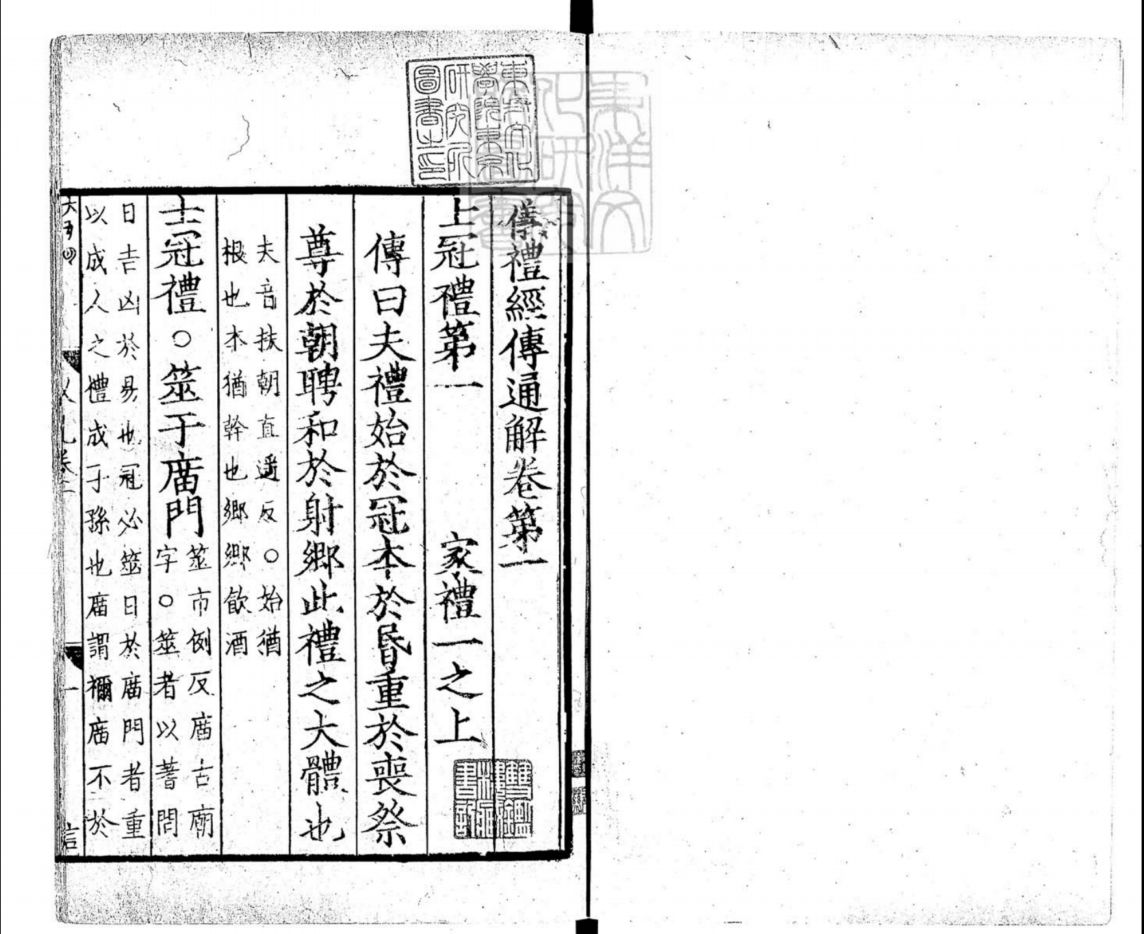 東方文化
學院東京
研究所
圖書之印
儀禮經傳通解卷第一
士冠禮第一　家禮一之上
傳曰夫禮始於冠本於昬重於喪祭
尊於朝聘和於射鄉此禮之大體也
夫音扶朝直遥反○始猶
根也本猶幹也鄉鄉飲酒
士冠禮○筮于庿門
筮市例反庿古廟
字○筮者以蓍問
日吉凶於易也冠必筮日於庿門者重
以成人之禮成子孫也庿謂禰庿不於